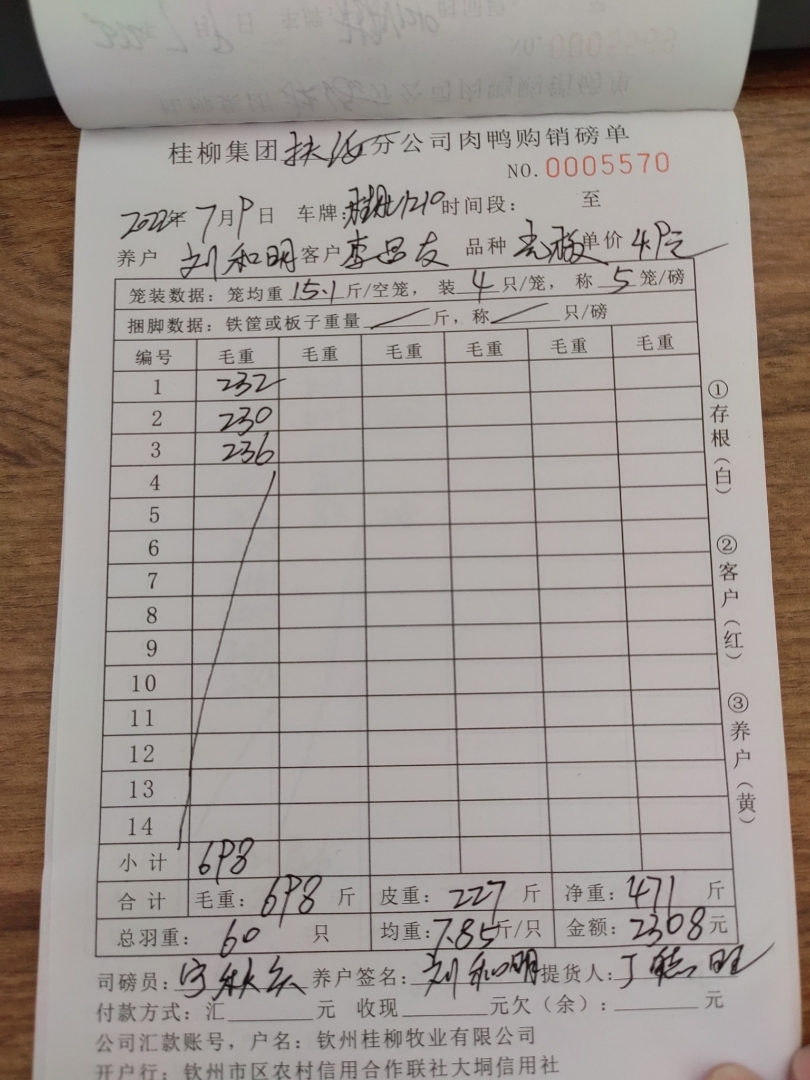 桂柳集团扶绥分公司肉鸭购销磅单
NO.0005570
2022年7月9日 车牌: 1210 时间段: 至
养户 刘和明 客户 李昌友 品种 单价 4.9元
笼装数据:笼均重 15.1 斤/空笼, 装 4 只/笼, 称 5 笼/磅
捆脚数据:铁筐或板子重量 / 斤,称 / 只/磅
编号 毛重 毛重 毛重 毛重 毛重 毛重
1 232
2 230
3 236
4
5
6
7
8
9
10
11
12
13
14
小计 698
合计 毛重: 698 斤 皮重: 227 斤 净重: 471 斤
总羽重: 60 只 均重: 7.85 斤/只 金额: 2308 元
司磅员: 养户签名: 刘和明 提货人: 丁 旺
付款方式:汇 元 收现 元欠(余): 元
公司汇款账号,户名:钦州桂柳牧业有限公司
开户行:钦州市区农村信用合作联社大垌信用社
①存根(白)
②客户(红)
③养户(黄)